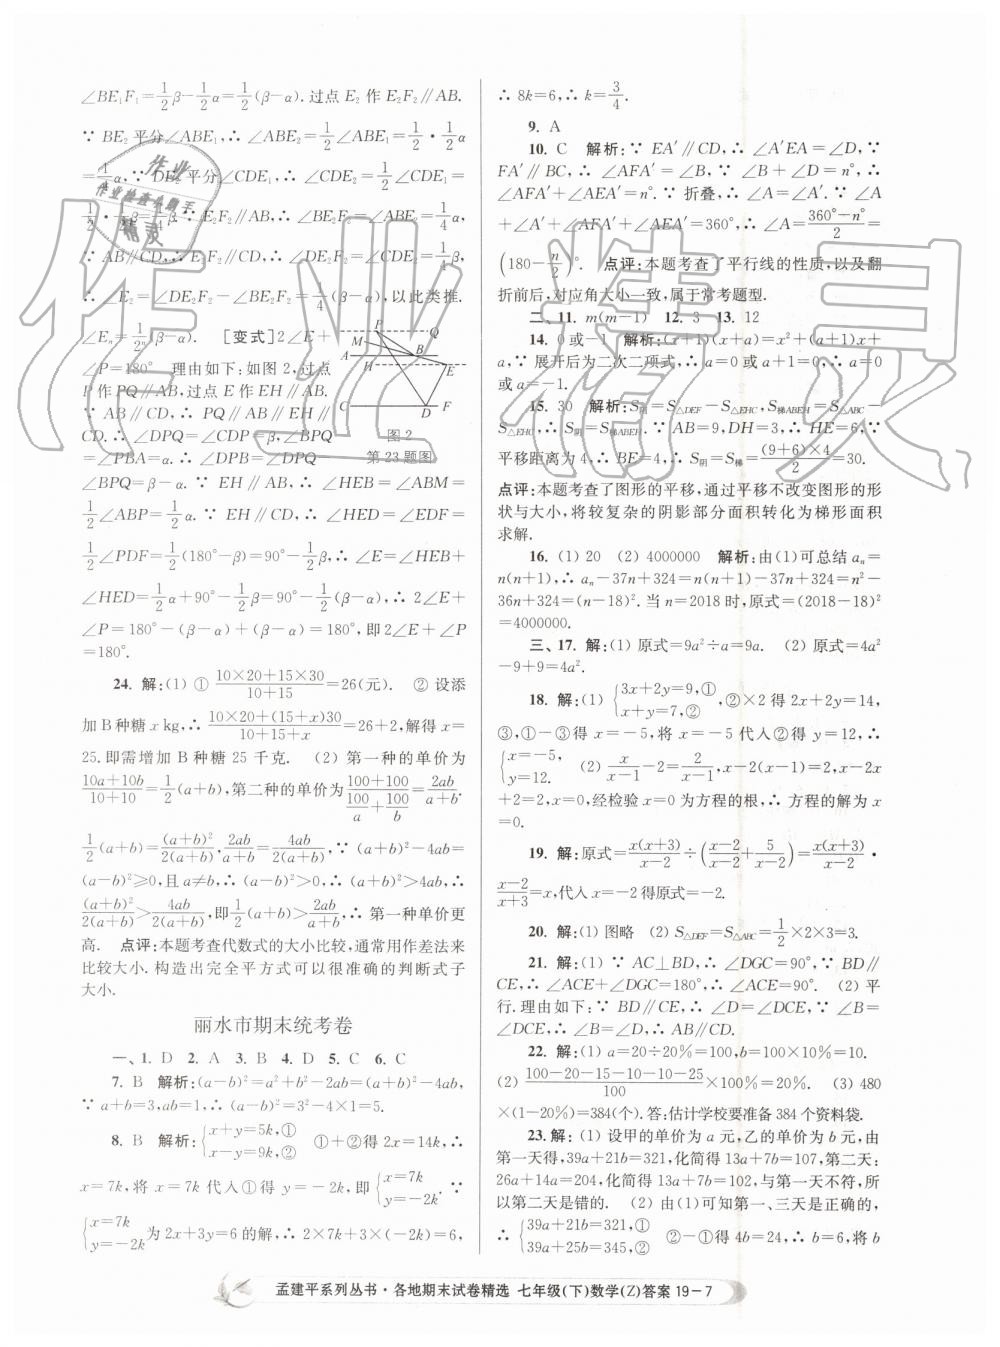 ∠BE₁F₁=1/2β−1/2α=1/2(β−α).过点 E₂ 作 E₂F₂∥AB.
∵ BE₂ 平分∠ABE₁,∴ ∠ABE₂=1/2∠ABE₁=1/2·1/2
α=1/4α,∵ DE₂ 平分∠CDE₁,∴ ∠CDE₂=1/2∠CDE₁=
1/2·1/2β=1/4β.∵ E₂F₂∥AB,∴ ∠BE₂F₂=∠ABE₂=1/4α,
∵ AB∥CD,∴ E₂F₂∥CD,∴ ∠DE₂F₂=∠CDE₂=1/4β,
∴ ∠E₂=∠DE₂F₂−∠BE₂F₂=1/4(β−α),以此类推.
∠Eₙ=1/2ⁿ(β−α). [变式]2∠E+
∠P=180° 理由如下:如图 2,过点
P作 PQ∥AB,过点 E作 EH∥AB.
∵ AB∥CD,∴ PQ∥AB∥EH∥
CD.∴ ∠DPQ=∠CDP=β,∠BPQ
=∠ABP=α.∴ ∠DPB=∠DPQ−
∠BPQ=β−α.∵ EH∥AB,∴ ∠HEB=∠ABM=
1/2∠ABP=1/2α.∵ EH∥CD,∴ ∠HED=∠EDF=
1/2∠PDF=1/2(180°−β)=90°−1/2β,∴ ∠E=∠HEB+
∠HED=1/2α+90°−1/2β=90°−1/2(β−α),∴ 2∠E+
∠P=180°−(β−α)+(β−α)=180°,即 2∠E+∠P
=180°.
P Q
M
A B
H E
C D F
图 2
第 23 题图
24. 解:(1) ① (10×20+15×30)/(10+15)=26(元). ② 设添
加 B 种糖 x kg,∴ (10×20+(15+x)30)/(10+15+x)=26+2,解得 x=
25.即需增加 B 种糖 25 千克. (2) 第一种的单价为
(10a+10b)/(10+10)=1/2(a+b),第二种的单价为(100+100)/(100/a+100/b)=2ab/(a+b).
1/2(a+b)=(a+b)²/2(a+b),2ab/(a+b)=4ab/2(a+b),∵ (a+b)²−4ab=
(a−b)²≥0,且 a≠b,∴ (a−b)²>0,∴ (a+b)²>4ab,∴
(a+b)²/2(a+b)>4ab/2(a+b),即1/2(a+b)>2ab/(a+b),∴ 第一种单价更
高. 点评:本题考查代数式的大小比较,通常用作差法来
比较大小.构造出完全平方式可以很准确的判断式子
大小.
丽水市期末统考卷
一、1. D 2. A 3. B 4. D 5. C 6. C
7. B 解析:(a−b)²=a²+b²−2ab=(a+b)²−4ab,
∵ a+b=3,ab=1,∴ (a−b)²=3²−4×1=5.
8. B 解析:{x+y=5k,① x−y=9k,② ①+②得 2x=14k,∴
x=7k,将 x=7k 代入①得 y=−2k,即{x=7k y=−2k. ∵
{x=7k y=−2k 为 2x+3y=6 的解,∴ 2×7k+3×(−2k)=6,
∴ 8k=6,∴ k=3/4.
9. A
10. C 解析:∵ EA′∥CD,∴ ∠A′EA=∠D,∵
FA′∥BC,∴ ∠AFA′=∠B,∵ ∠B+∠D=n°,∴
∠AFA′+∠AEA′=n°.∵ 折叠,∴ ∠A=∠A′.∵ ∠A
+∠A′+∠AFA′+∠AEA′=360°,∴ ∠A=(360°−n°)/2=
(180−n/2)°. 点评:本题考查了平行线的性质,以及翻
折前后,对应角大小一致,属于常考题型.
二、11. m(m−1) 12. 3 13. 12
14. 0 或−1 解析:(x+1)(x+a)=x²+(a+1)x+
a,∵ 展开后为二次二项式,∴ a=0 或 a+1=0,∴ a=0
或 a=−1.
15. 30 解析:S阴=S△DEF−S△EHC,S梯ABEH=S△ABC−
S△EHC,∴ S阴=S梯ABEH.∵ AB=9,DH=3,∴ HE=6,∵
平移距离为 4,∴ BE=4,∴ S阴=S梯=(9+6)×4/2=30.
点评:本题考查了图形的平移,通过平移不改变图形的形
状与大小,将较复杂的阴影部分面积转化为梯形面积
求解.
16. (1) 20 (2) 4000000 解析:由(1)可总结 aₙ=
n(n+1),∴ aₙ−37n+324=n(n+1)−37n+324=n²−
36n+324=(n−18)².当 n=2018 时,原式=(2018−18)²
=4000000.
三、17. 解:(1) 原式=9a²÷a=9a. (2) 原式=4a²
−9+9=4a².
18. 解:(1) {3x+2y=9,① x+y=7,② ,②×2 得 2x+2y=14,
③,①−③得 x=−5,将 x=−5 代入②得 y=12,∴
{x=−5, y=12. (2) x/(x−1)−2=2/(x−1),x−2(x−1)=2,x−2x
+2=2,x=0,经检验 x=0 为方程的根,∴ 方程的解为 x
=0.
19. 解:原式=x(x+3)/(x−2)÷((x−2)/(x−2)+5/(x−2))=x(x+3)/(x−2)·
(x−2)/(x+3)=x,代入 x=−2 得原式=−2.
20. 解:(1) 图略 (2) S△DEF=S△ABC=1/2×2×3=3.
21. 解:(1) ∵ AC⊥BD,∴ ∠DGC=90°,∵ BD∥
CE,∴ ∠ACE+∠DGC=180°,∴ ∠ACE=90°. (2) 平
行.理由如下:∵ BD∥CE,∴ ∠D=∠DCE,∵ ∠B=
∠DCE,∴ ∠B=∠D,∴ AB∥CD.
22. 解:(1) a=20÷20%=100,b=100×10%=10.
(2) (100−20−15−10−10−25)/100×100%=20%. (3) 480
×(1−20%)=384(个).答:估计学校要准备 384 个资料袋.
23. 解:(1) 设甲的单价为 a 元,乙的单价为 b 元,由
第一天得,39a+21b=321,化简得 13a+7b=107,第二天:
26a+14a=204,化简得 13a+7b=102,与第一天不符,所
以第二天是错的. (2) 由(1)可知第一、三天是正确的,
∴ {39a+21b=321,① 39a+25b=345,② ②−①得 4b=24,∴ b=6,将 b
孟建平系列丛书·各地期末试卷精选 七年级(下)数学(Z)答案 19−7
作业精灵
作业
作业检查小助手
精灵